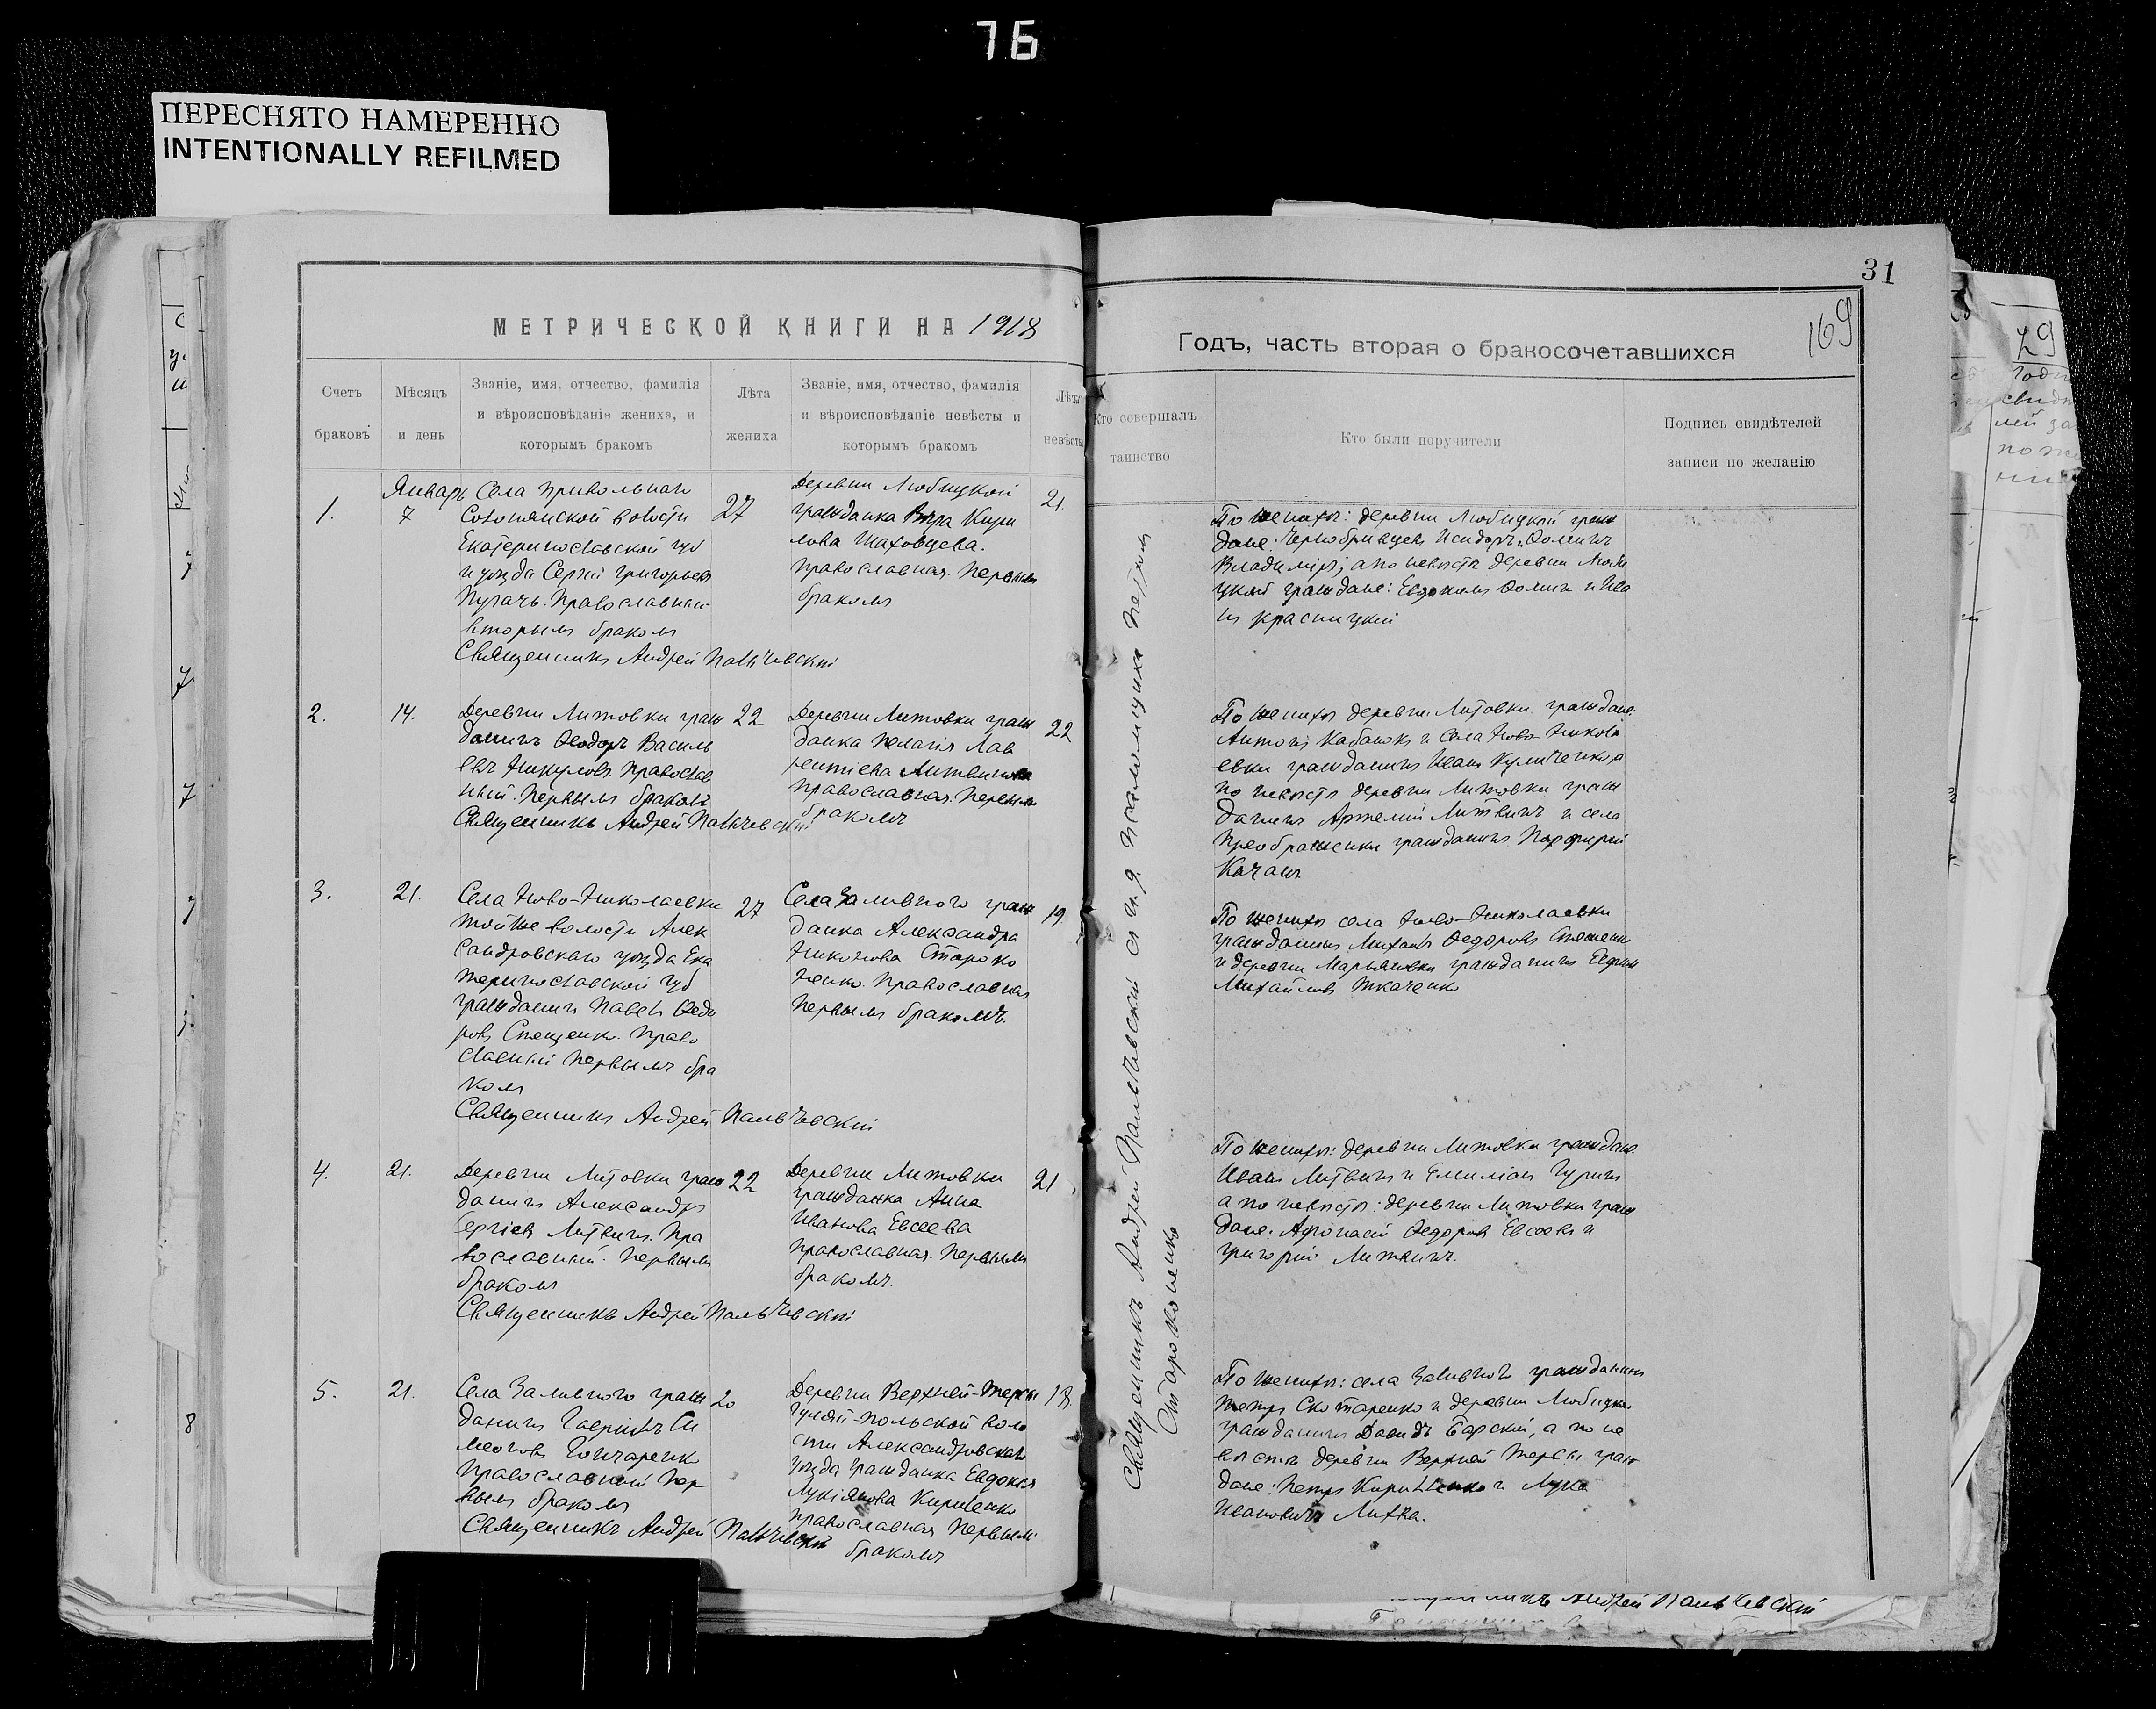 76
ПЕРЕСНЯТО НАМЕРЕННО
INTENTIONALLY REFILMED
31
169
29
МЕТРИЧЕСКОЙ КНИГИ НА 1918
Годъ, часть вторая о бракосочетавшихся
Счетъ браковъ
Мѣсяцъ и день
Званіе, имя, отчество, фамилія
и вѣроисповѣданіе жениха, и
которымъ бракомъ
Лѣта жениха
Званіе, имя, отчество, фамилія
и вѣроисповѣданіе невѣсты и
которымъ бракомъ
Лѣта невѣсты
Кто совершалъ
таинство
Кто были поручители
Подпись свидѣтелей
записи по желанію
1.
Январь
7
Села Привольнаго
волости
Екатеринославской губ
и уѣзда Сергій Григорьевъ
Пугачъ. Православный
вторымъ бракомъ
Священникъ Андрей Пальчевскій
27
Деревни Любицкой
гражданка Вѣра Кири
лова Шаховцева.
Православная. Первымъ
бракомъ
21.
По женихѣ: деревни Любицкой граж
дане: Чернобривцевъ Исидоръ и Фоминъ
Владиміръ; а по невѣстѣ деревни Люби
цкой граждане: Евдокимъ Фоминъ и Ива
нъ Красницкій
2.
14.
Деревни Литовки граж
данинъ Феодоръ Василь
евъ Никуловъ. Православ
ный. Первымъ бракомъ
Священникъ Андрей Пальчевскій
22
Деревни Литовки граж
данка Пелагія Лав
рентіева Литвинова
Православная. Первымъ
бракомъ
22
По женихѣ деревни Литовки граждане:
Антонъ Кабанокъ и села Ново-Никола
евки гражданинъ Иванъ Куличенко, а
по невѣстѣ деревни Литовки граж
данинъ Артемій Литвинъ и села
Преображенки гражданинъ Порфирій
Качанъ
3.
21.
Села Ново-Николаевки
той же волости Алек
сандровскаго уѣзда Ека
теринославской губ
гражданинъ Павелъ Федо
ровъ Спещенко. Право
славный Первымъ бра
комъ
Священникъ Андрей Пальчевскій
27
Села Заливного граж
данка Александра
Никонова Староко
ненко. Православная
Первымъ бракомъ.
19
По женихѣ села Ново-Николаевки
гражданинъ Михаилъ Федоровъ
и деревни Марьяновки гражданинъ Ефимъ
Михайловъ Ткаченко
4.
21.
Деревни Литовки граж
данинъ Александръ
Сергіевъ Литвинъ. Пра
вославный. Первымъ
бракомъ
Священникъ Андрей Пальчевскій
22
Деревни Литовки
гражданка Анна
Иванова Евсеева
Православная. Первымъ
бракомъ.
21
По женихѣ: деревни Литовки граждане
Иванъ Литвинъ и Емиліанъ Гуринъ
а по невѣстѣ: деревни Литовки граж
дане: Афонасій Федоровъ Евсеевъ и
Григорій Литвинъ.
5.
21.
Села Заливного граж
данинъ Гавріилъ Си
меоновъ Гончаренко
Православный Пер
вымъ бракомъ
Священникъ Андрей Пальчевскій
20
Деревни Верхней-Терсы
Гуляй-Польской воло
сти Александровскаго
уѣзда гражданка Евдокія
Лукіянова Кириленко
Православная Первымъ
бракомъ
18.
По женихѣ: села Заливного гражданинъ
Петръ Скотаренко и деревни Любицкой
гражданинъ Давидъ Барскій, а по не
вѣстѣ деревни Верхней Терсы граж
дане: Петръ Кириленко и Лука
Ивановичъ Лихва.
Священникъ Андрей Пальчевскій съ и. д. псаломщика Петромъ
Староконенко
Андрей Пальчевскій